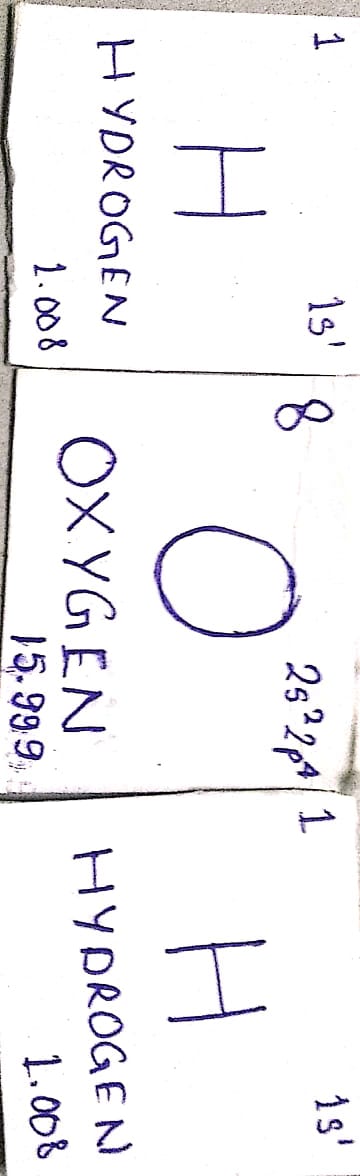 1 1s¹
H
HYDROGEN
1.008
8 2s²2p⁴
O
OXYGEN
15.999
1 1s¹
H
HYDROGEN
1.008